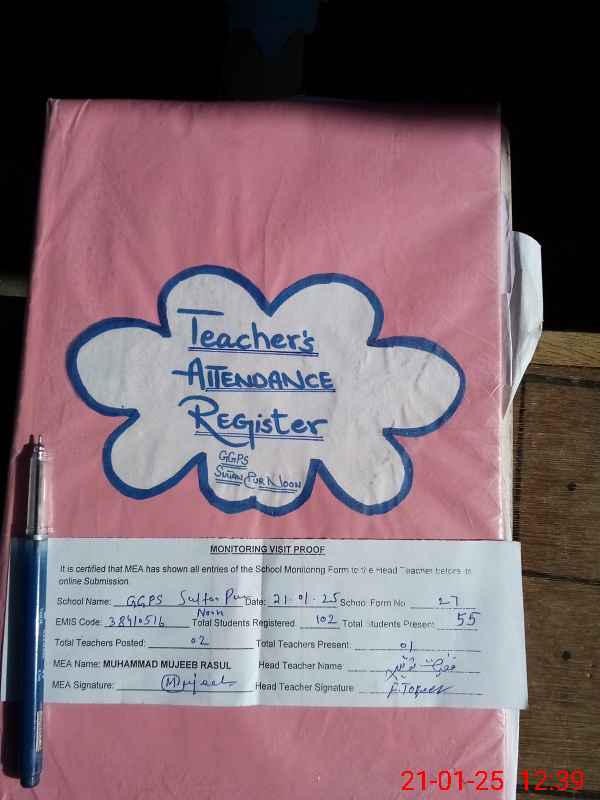 Teacher's
ATTENDANCE
Register
GGPS
Sultan Pur Noon
MONITORING VISIT PROOF
It is certified that MEA has shown all entries of the School Monitoring Form to the Head Teacher before
online Submission.
School Name: GGPS Sultan Pur Noon Date: 21-01-25 School Form No. 27
EMIS Code: 38410516 Total Students Registered: 102 Total Students Present: 55
Total Teachers Posted: 02 Total Teachers Present: 01
MEA Name: MUHAMMAD MUJEEB RASUL Head Teacher Name
MEA Signature: Mujeeb Head Teacher Signature
21-01-25 12:39